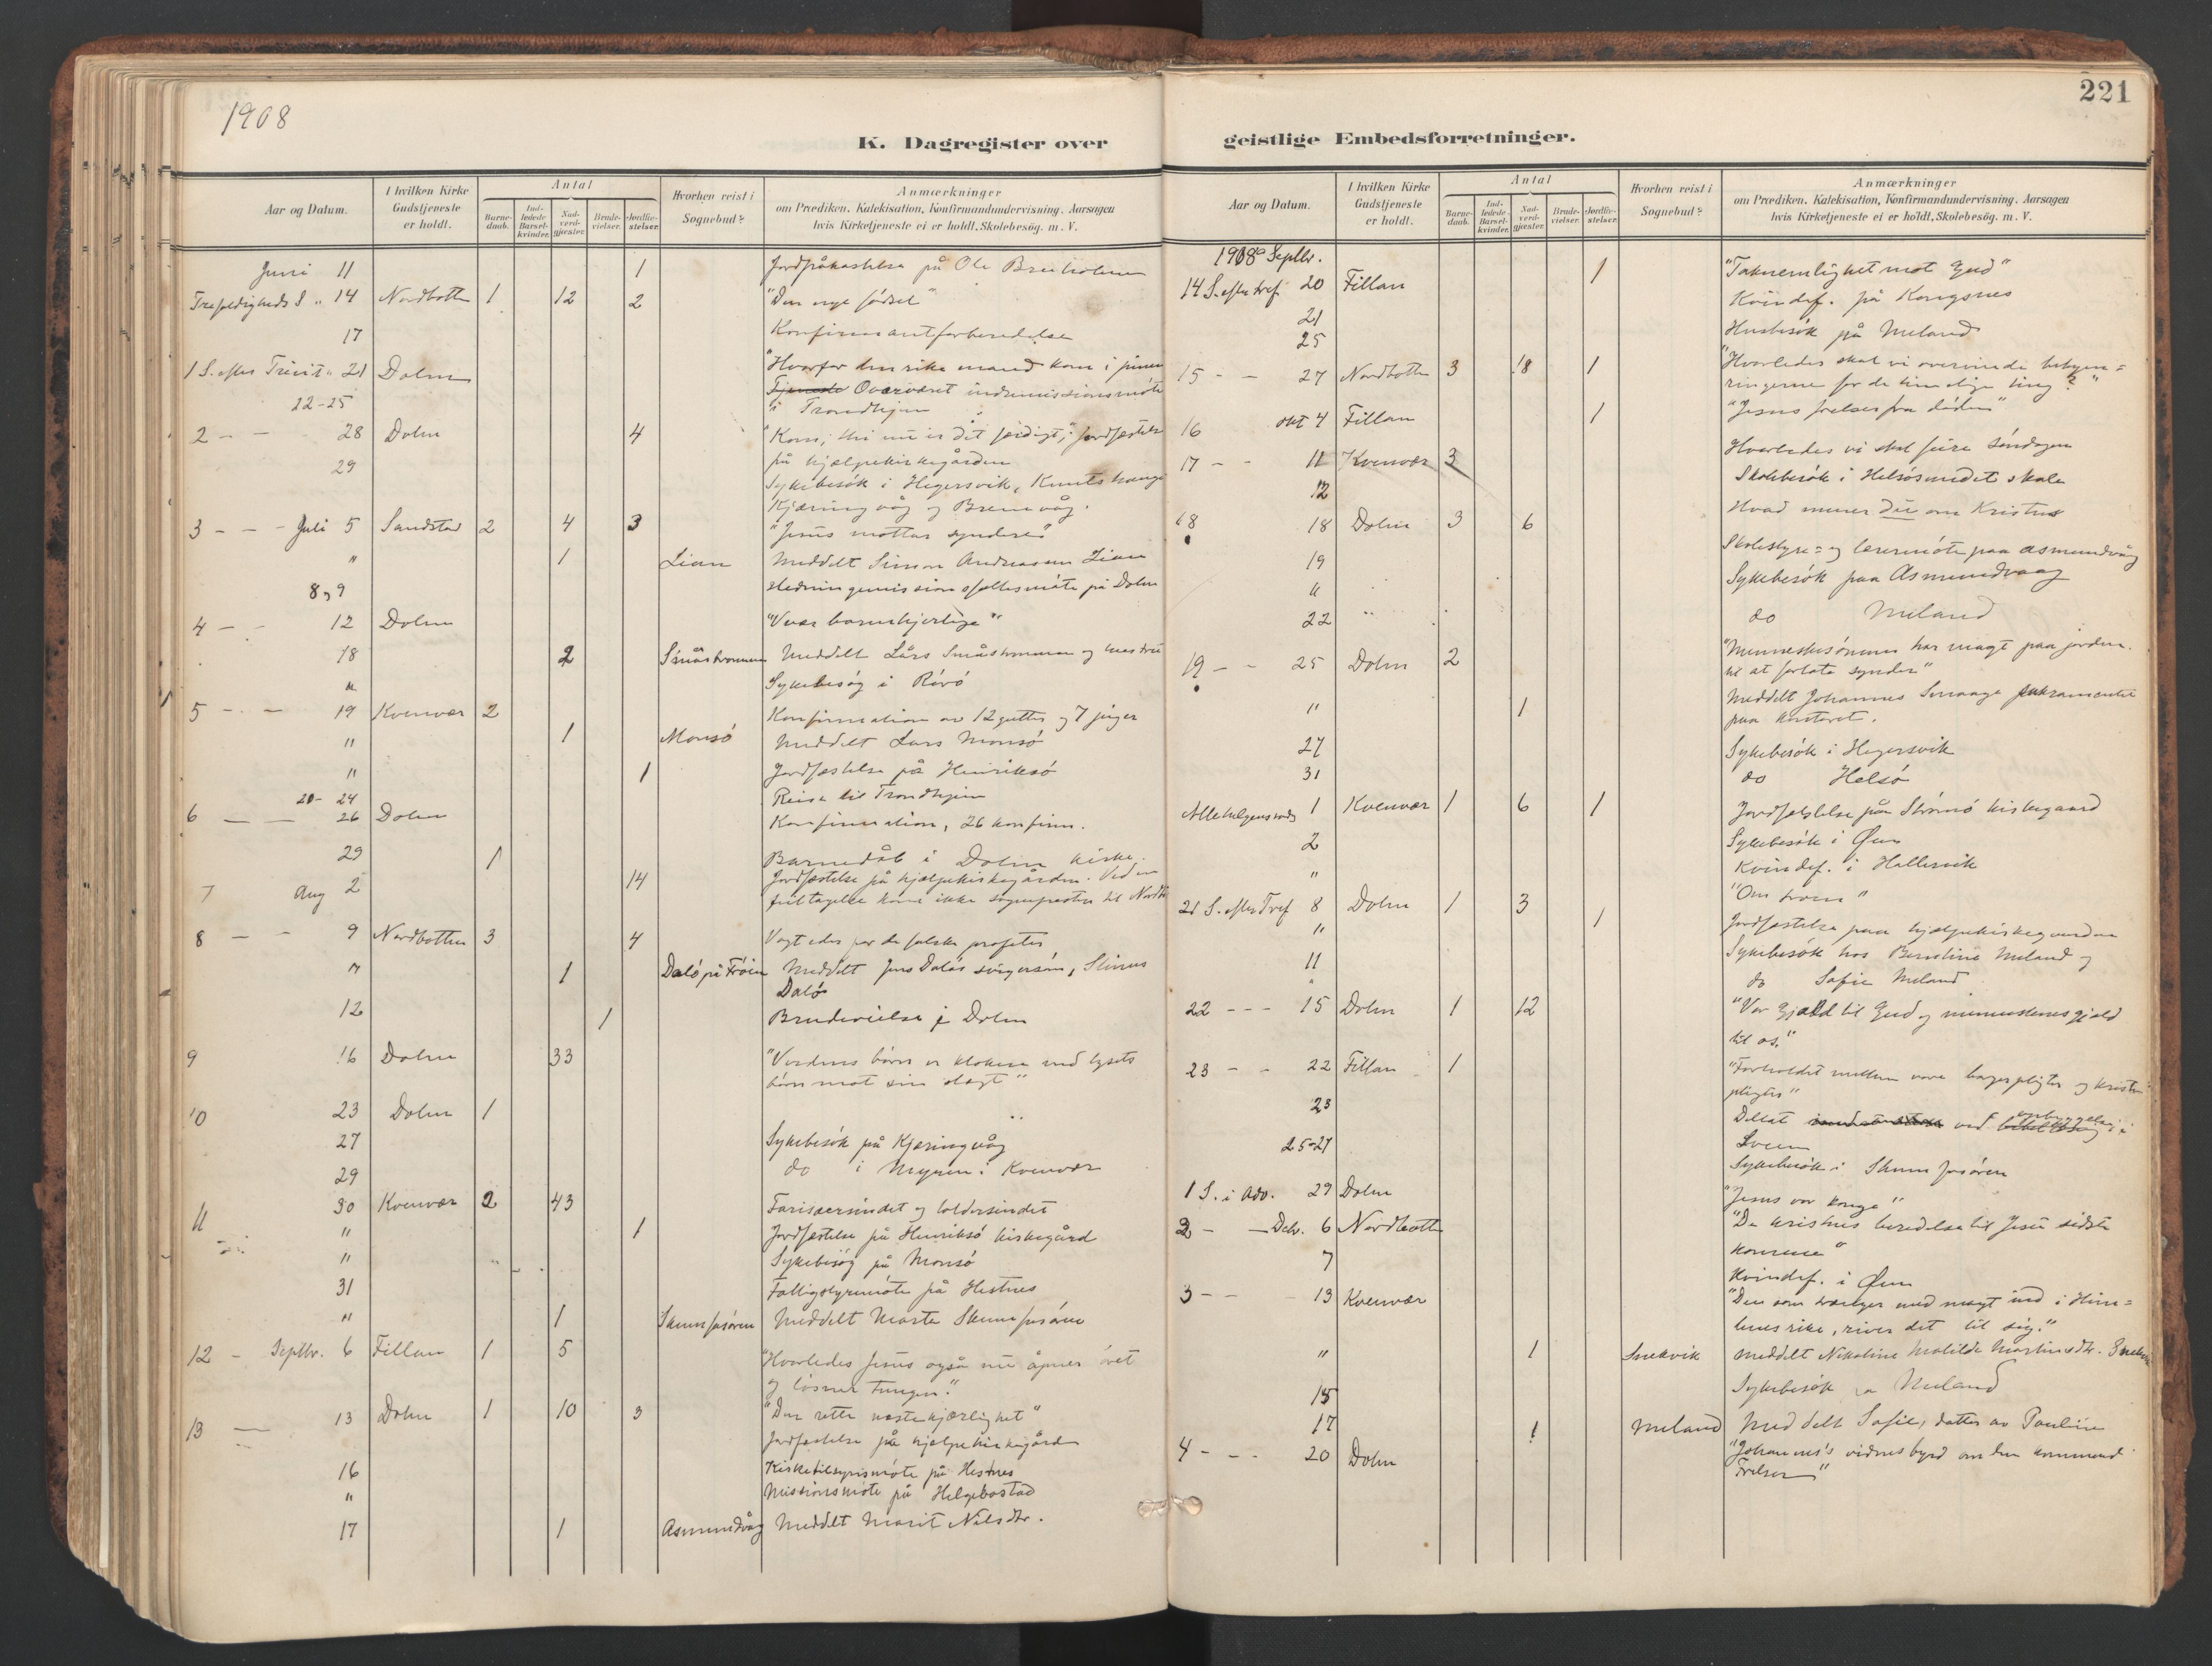 1908
221
K. Dagregister over
geistlige Embedsforretninger.
Aar og Datum.
I hvilken Kirke Gudstjeneste er holdt.
Antal
Barnedaab.
Indledede Barselkvinder.
Nadverdgjæster.
Brudevielser.
Jordfæstelser.
Hvorhen reist i Sognebud?
Anmærkninger
om Prædiken, Katekisation, Konfirmandundervisning. Aarsagen
hvis Kirketjeneste ei er holdt, Skolebesög. m. V.
Juni 11 1 Jordpåkastelse på Ole Breiholmen
Trefoldigheds S " 14 Nordbotn 1 12 2 "Den nye fødsel"
17 Konfirmantforberedelse
1 S. efter Trinit. " 21 Dolm "Hvorfor den rike mand kom i pinen
22-25 Tjeneste Overværet indremissionsmöte
i Trondhjem
2 - - 28 Dolm 4 "Kom, thi nu er det færdigt"; Jordfæstelse
på hjælpekirkegården
29 Sykebesök i Hegersvik, Knutshaug
Kjæringvåg og Bremvåg.
3 - - - Juli 5 Sandstad 2 4 3 "Jesus mottar syndere"
" 1 Lian Meddelt Simon Andreassen Lian
8 og 9 Hedningemissionsfællesmöte på Dolm
4 - - 12 Dolm "Vær barmhjertige"
18 2 Småströmmen Meddelt Lårs Småströmmen og hustru
" Sykebesøg i Rörö
5 - - 19 Kvenvær 2 Konfirmation av 12 gutter og 7 piger
" 1 Monsö Meddelt Lars Monsö
" 1 Jordfæstelse på Henriksö
20-24 Reise til Trondhjem
6 — — 26 Dolm Konfirmation, 26 konfirm.
29 1 Barnedåb i Dolm kirke.
7 Aug 2 14 Jordfæstelse på hjælpekirkegården. Ved en
feiltagelse kom ikke sognepresten til Nordb
8 — - 9 Nordbotten 3 4 Vogt eder for de falske profeter
" 1 Dalö på Fröien Meddelt Jens Dalös svigersön, Stinus
Dalö
12 1 Brudevielse i Dolm
9 16 Dolm 33 "Verdens börn er klokere end lysets
börn mot sin slegt"
10 23 Dolm 1 "
27 Sykebesök på Kjæringvåg
29 do i Myren i Kvenvær
11 30 Kvenvær 2 43 Farisæersindet og toldersindet
" 1 Jordfæstelse på Henriksö kirkegård
" Sykebesøg på Monsö
31 Fattigstyremöte på Hestnes
" 1 Skumfusören Meddelt Marta Skumfusören
12 - Septbr. 6 Fillan 1 5 "Hvorledes Jesus også nu åpner öret
og løsner tungen."
13 — 13 Dolm 1 10 3 "Den rette næstekjærlighet"
Jordfæstelse på hjælpekirkegården
16 Kirketilsynsmöte på Hestnes
" Missionsmöte på Helgebostad
17 1 Asmundvåg Meddelt Marit Nilsdtr.
Aar og Datum.
I hvilken Kirke Gudstjeneste er holdt.
Antal
Barnedaab.
Indledede Barselkvinder.
Nadverdgjæster.
Brudevielser.
Jordfæstelser.
Hvorhen reist i Sognebud?
Anmærkninger
om Prædiken, Katekisation, Konfirmandundervisning. Aarsagen
hvis Kirketjeneste ei er holdt, Skolebesög. m. V.
1908 Septbr.
14 S. efter tref 20 Fillan 1 "Taknemlighet mot Gud"
21 Kvindef. på Kongsnes
25 Husbesök på Meland
15 - - 27 Nordbotn 3 18 1 "Hvorledes skal vi overvinde bekym=
ringerne for de timelige ting?"
16 okt 4 Fillan 1 "Jesus frelser fra döden"
17 - - 11 Kvenvær 3 Hvorledes vi skal feire söndagen
12 Skolebesök i Helsösundet skole
18 18 Dolm 3 6 Hvad mener du om Kristus
19 Skolestyre= og lærermöte paa Asmundvåg
" Sykebesök paa Asmundvaag
22 do Meland
19 - - 25 Dolm 2 "Menneskesönnen har magt paa jorden
til at forlate synder"
" 1 Meddelt Johannes sakramentet
paa kontoret.
27 Sykebesök i Hegersvik
31 do Helsö
Allehelgensd. 1 Kvenvær 1 6 1 Jordfæstelse på Strömö kirkegaard
2 Sykebesök i Øen
" Kvindef. i Hallervik
21 S. efter Tref 8 Dolm 1 3 "Om troen"
" 1 Jordfæstelse paa hjælpekirkegaarden
11 Sykebesök hos Berntine Meland og
" do Sofie Meland
22 - - - 15 Dolm 1 12 "Vor Gjæld til Gud og menneskenes gjæld
til os."
23 - - 22 Fillan 1 "Forholdet mellem vore borgerpligter og kristen
pligter"
23 Deltat ved opbyggelse i
Sveen
25-27 Sykebesök i Skumfusören
1 S. i Adv. 29 Dolm "Jesus vor konge"
2 - — Dcbr. 6 Nordbotn "De kristnes beredelse til Jesu sidste
komme"
7 Kvindef. i Øen
3 - - 13 Kvenvær "Den som trænger med magt ind i Him=
lenes rike, river det til sig."
" 1 Snekvik Meddelt Nikoline Matilde Martinsdtr. Snekvik
15 Sykebesök på Meland
17 1 Meland Meddelt Sofie, datter av Pauline
4 - - - 20 Dolm "Johannes's vidnesbyrd om den kommende
Frelser"